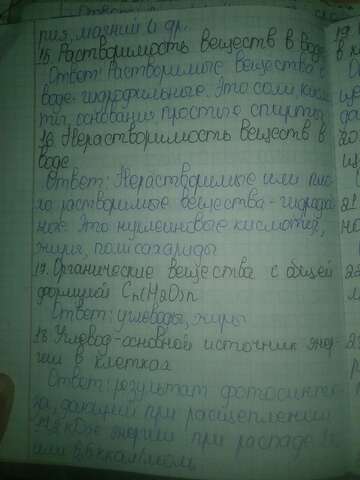 рия, магний и др.
15. Растворимость веществ в воде
Ответ: Растворимые вещества в
воде-гидрофильные. Это соли кисло
ты, основания простые спирты
16. Нерастворимость веществ в
воде
Ответ: Нерастворимые или пло
хо растворимые вещества-гидрофоб
ное. Это нуклеиновые кислоты,
жиры, полисахариды
17. Органические вещества с общей
формулой Cn(H2O)n
Ответ: углеводы, жиры
18. Углевод-основной источник энер
гии в клетках
Ответ: результат фотосинте
за, дающий при расщеплении
кДж энергии при распаде 1г
или ккал/моль